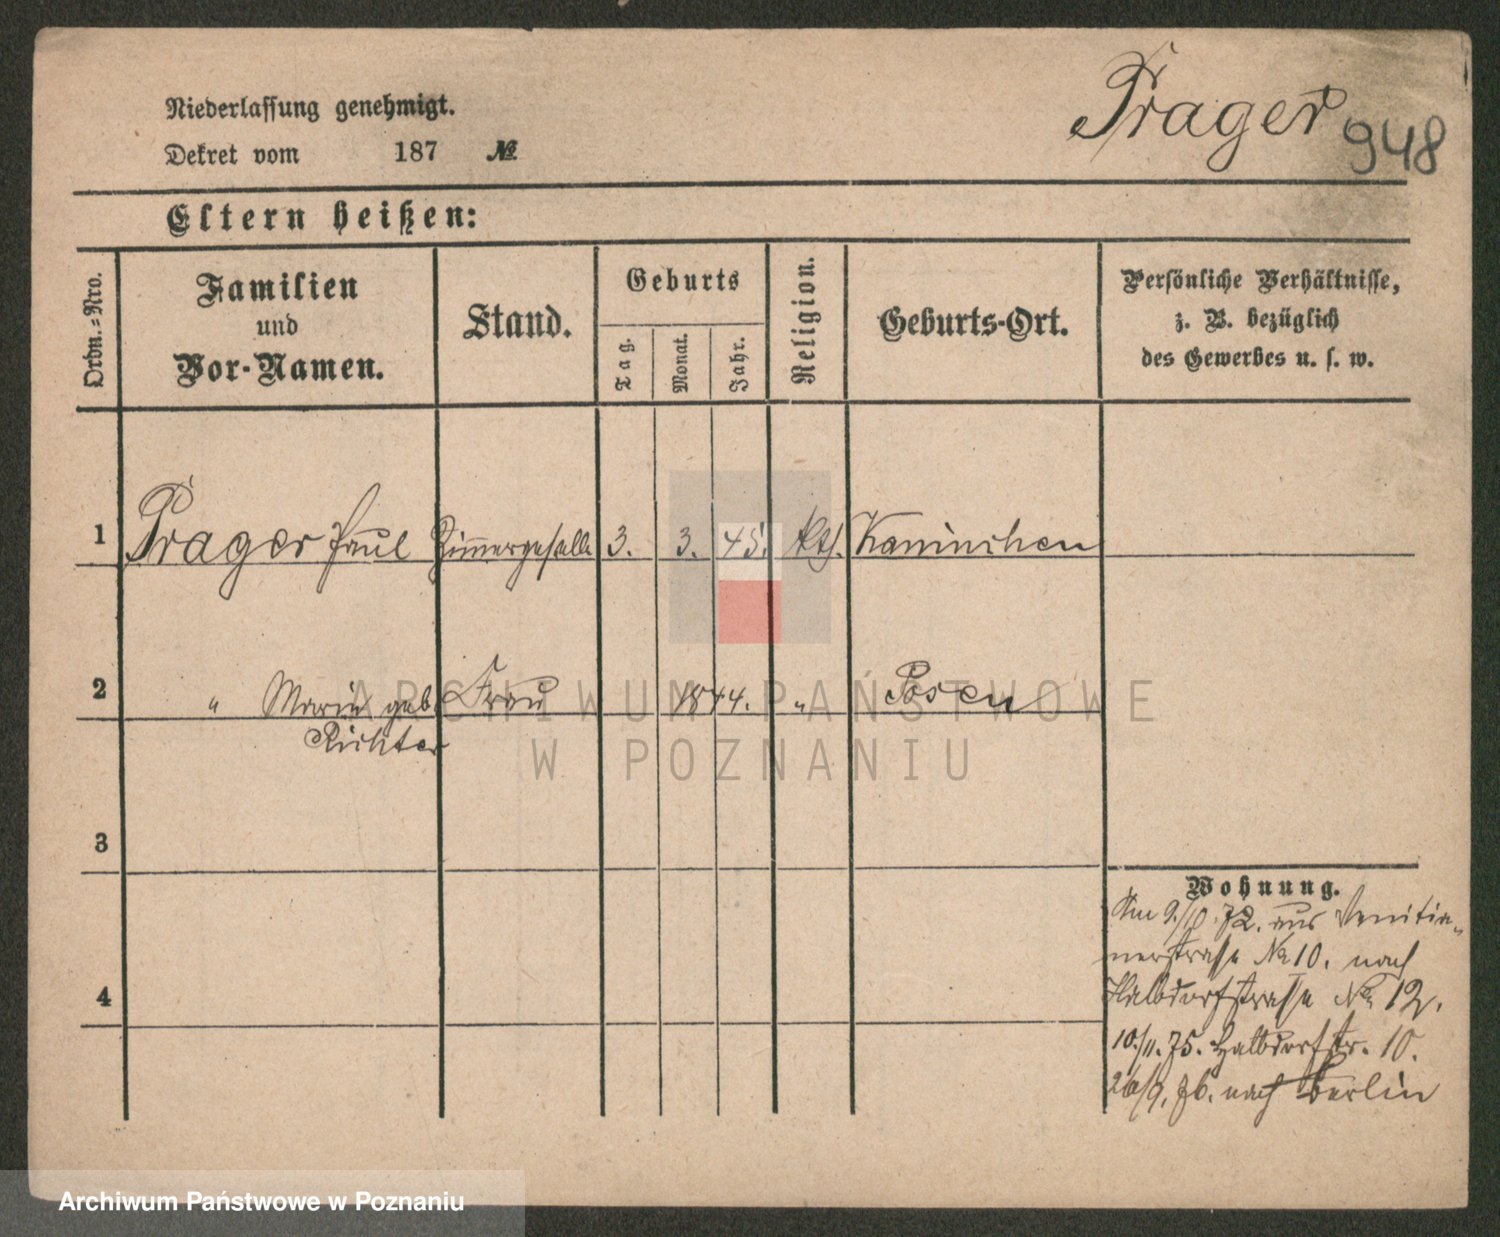 Prager
948
Niederlassung genehmigt.
Dekret vom 187 №
Eltern heißen:
Ordn.=Nro.
Familien
und
Vor-Namen.
Stand.
Geburts
Tag.
Monat.
Jahr.
Religion.
Geburts-Ort.
Persönliche Verhältnisse,
z. B. bezüglich
des Gewerbes u. s. w.
1 Prager Paul Zimmergeselle 3. 3. 45. kth. Kaninchen
2 " Maria geb. Frau 1844. " Posen
Richter
3
4
Wohnung.
Am 9./10. 72. aus Venetia-
nerstrasse № 10. nach
Halbdorfstrasse № 12.
10./11. 75. Halbdorfstr. 10.
26/9. 76. nach Berlin
ARCHIWUM PAŃSTWOWE
W POZNANIU
Archiwum Państwowe w Poznaniu